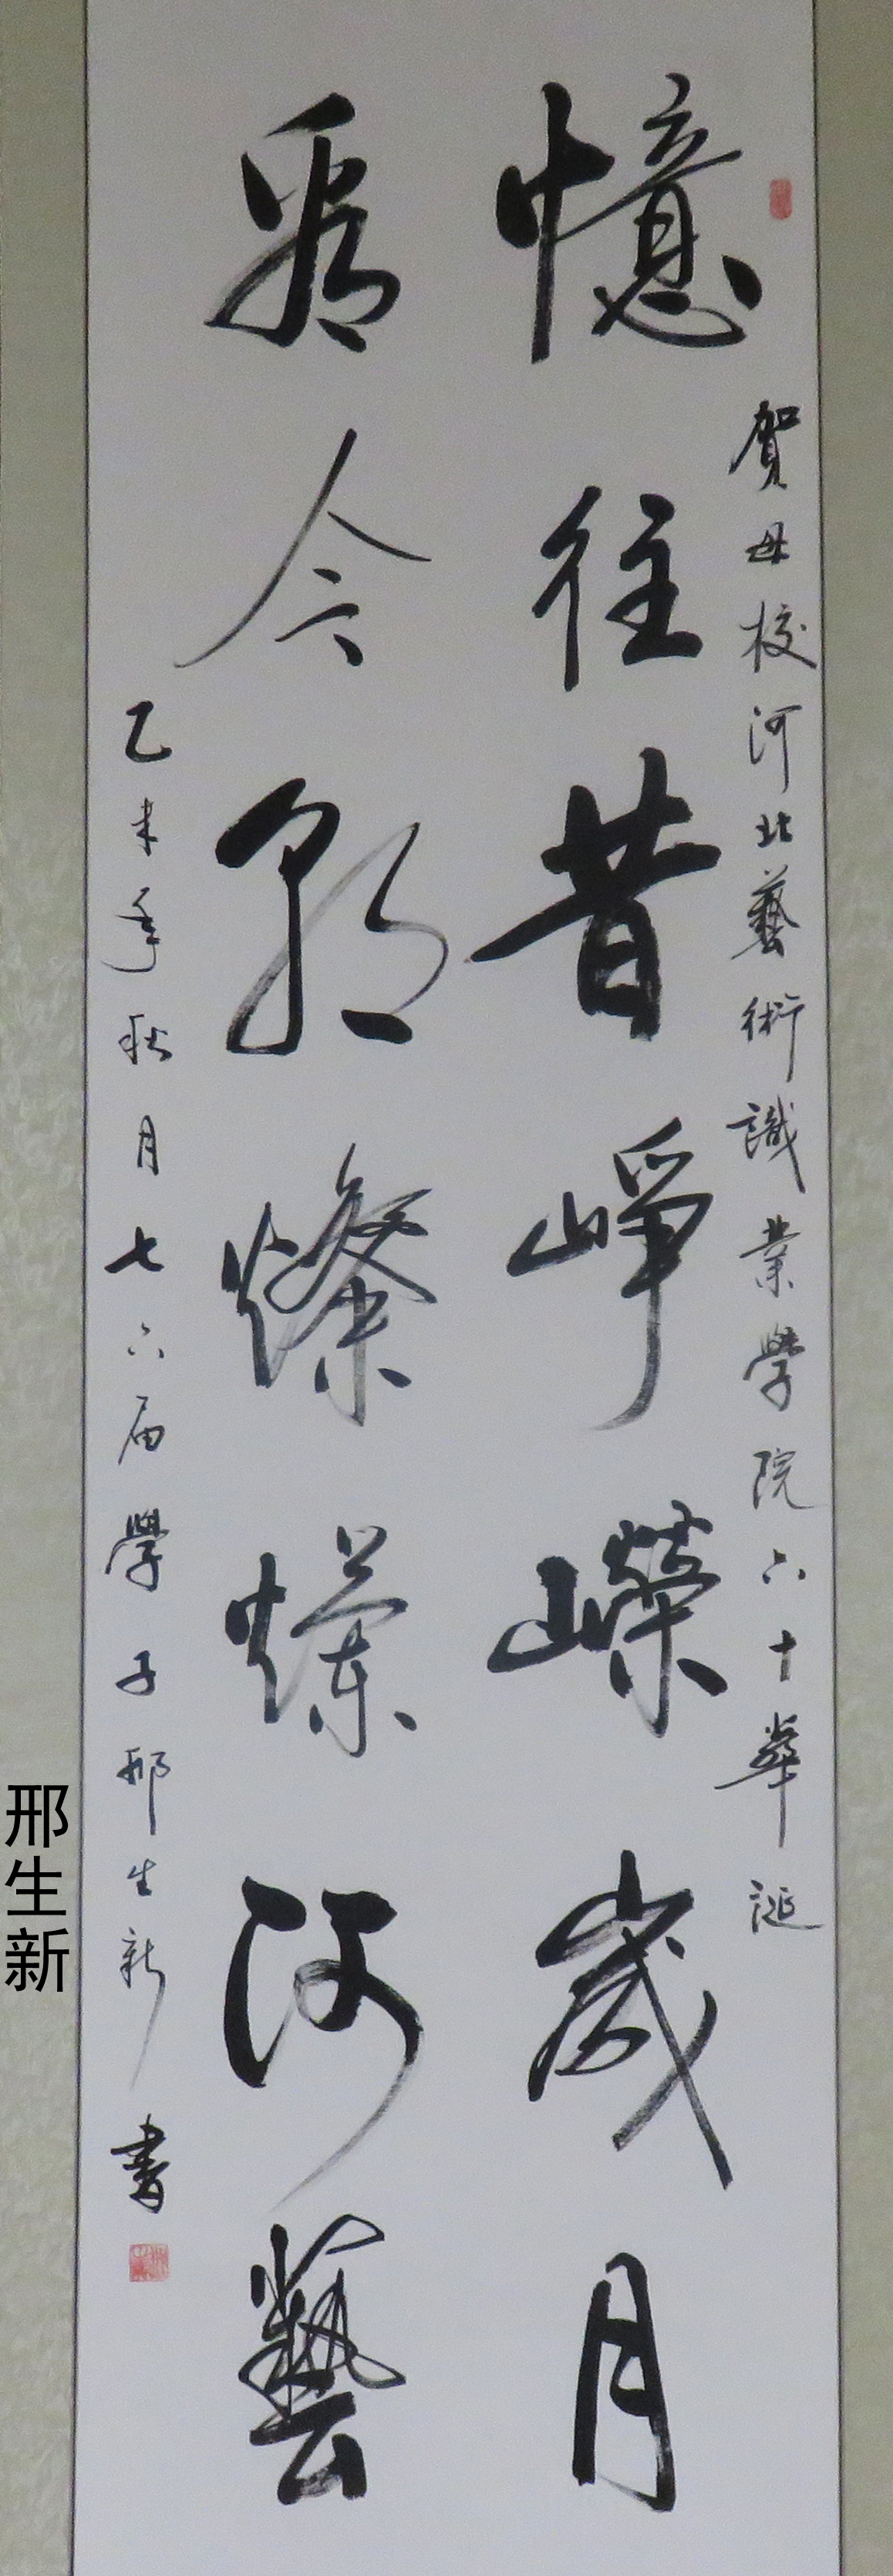 賀母校河北藝術識業學院六十華誕
憶往昔崢嶸歲月
看今朝燦爛河藝
乙未年秋月七六届學子邢生新書
邢生新